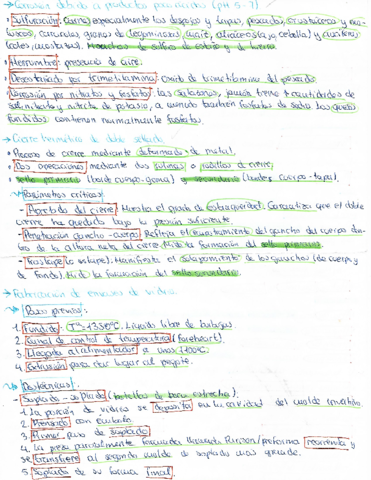 → Corrosión debido a productos poco ácidos (pH 5-7)
• Sulfuración: Carne, especialmente los despojos y lengua, pescados, crustáceos y mo-
luscos, conservas, granos de leguminosas, maíz, aliáceas (ajo, cebolla) y crucíferas
(coles, mostazas). Manchas de sulfuro de estaño y de hierro.
• Herrumbre: presencia de aire.
• Desestañado por trimetilamina: Óxido de trimetilamina del pescado.
• Corrosión por nitratos y fosfatos: las salazones, jamón tienen cantidades de
salinitrato y nitrito de potasio, a menudo también fosfatos de sodio. Los quesos
fundidos contienen normalmente fosfatos.
→ Cierre hermético de doble sellado
• Proceso de cierre mediante deformado de metal.
• Dos operaciones mediante dos rulinas o rodillos de cierre,
sello primario (borde cuerpo-goma) y secundario (bordes cuerpo-tapa).
Parámetros críticos:
- Apretado del cierre: Muestra el grado de estanqueidad. Garantiza que el doble
cierre ha quedado bajo la presión suficiente.
- Penetración gancho-cuerpo: Refleja el encastramiento del gancho del cuerpo den-
tro de la altura neta de cierre. Mide la formación del sello primario.
- Traslape (o solape): Manifiesta el solapamiento de los ganchos (de cuerpo y
de fondo). Mide la formación del sello secundario.
→ Fabricación de envases de vidrio.
Pasos previos:
1. Fundido: Tª = 1350ºC. Líquido libre de burbujas.
2. Canal de control de temperatura (forehearth).
3. Llegada al alimentador a unos 1100ºC.
4. Extrusión para dar lugar al pegote.
Dos técnicas:
- Soplado-soplado (botellas de boca estrecha).
1. La porción de vidrio se deposita en la cavidad del molde invertido.
2. Prensado con émbolo.
3. Primer paso de soplado.
4. La pieza parcialmente formada llamada Parison/preforma reconecta y
se transfiere al segundo molde de soplado más grande.
5. Soplado de su forma final.